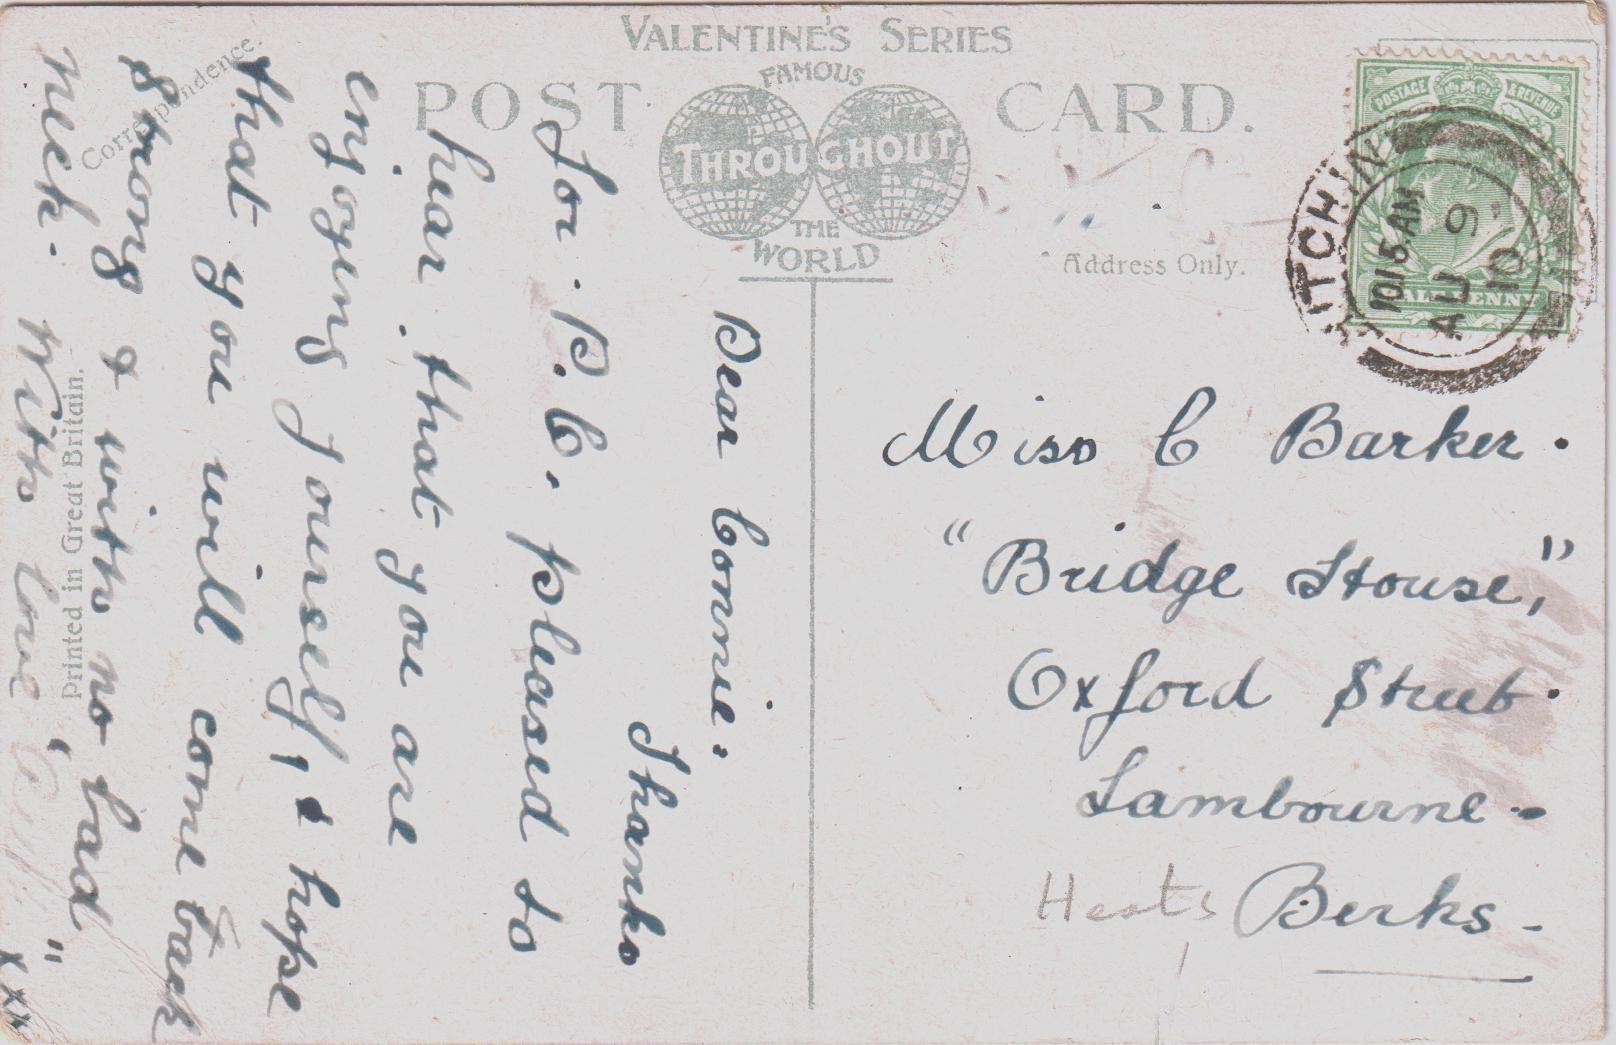 VALENTINE'S SERIES
FAMOUS
POST CARD.
THROUGHOUT
THE
WORLD
Correspondence.
Address Only.
Printed in Great Britain.
POSTAGE & REVENUE
HALFPENNY
HITCHIN
10.15 AM
AU 9
10
Dear Connie.
Thanks
for. P.C. pleased to
hear. that you are
enjoying yourself, & hope
that you will come back
strong & with no "bad
neck. With love,
xxx
Miss C Barker.
"Bridge House,"
Oxford Street.
Lambourne.
Berks.